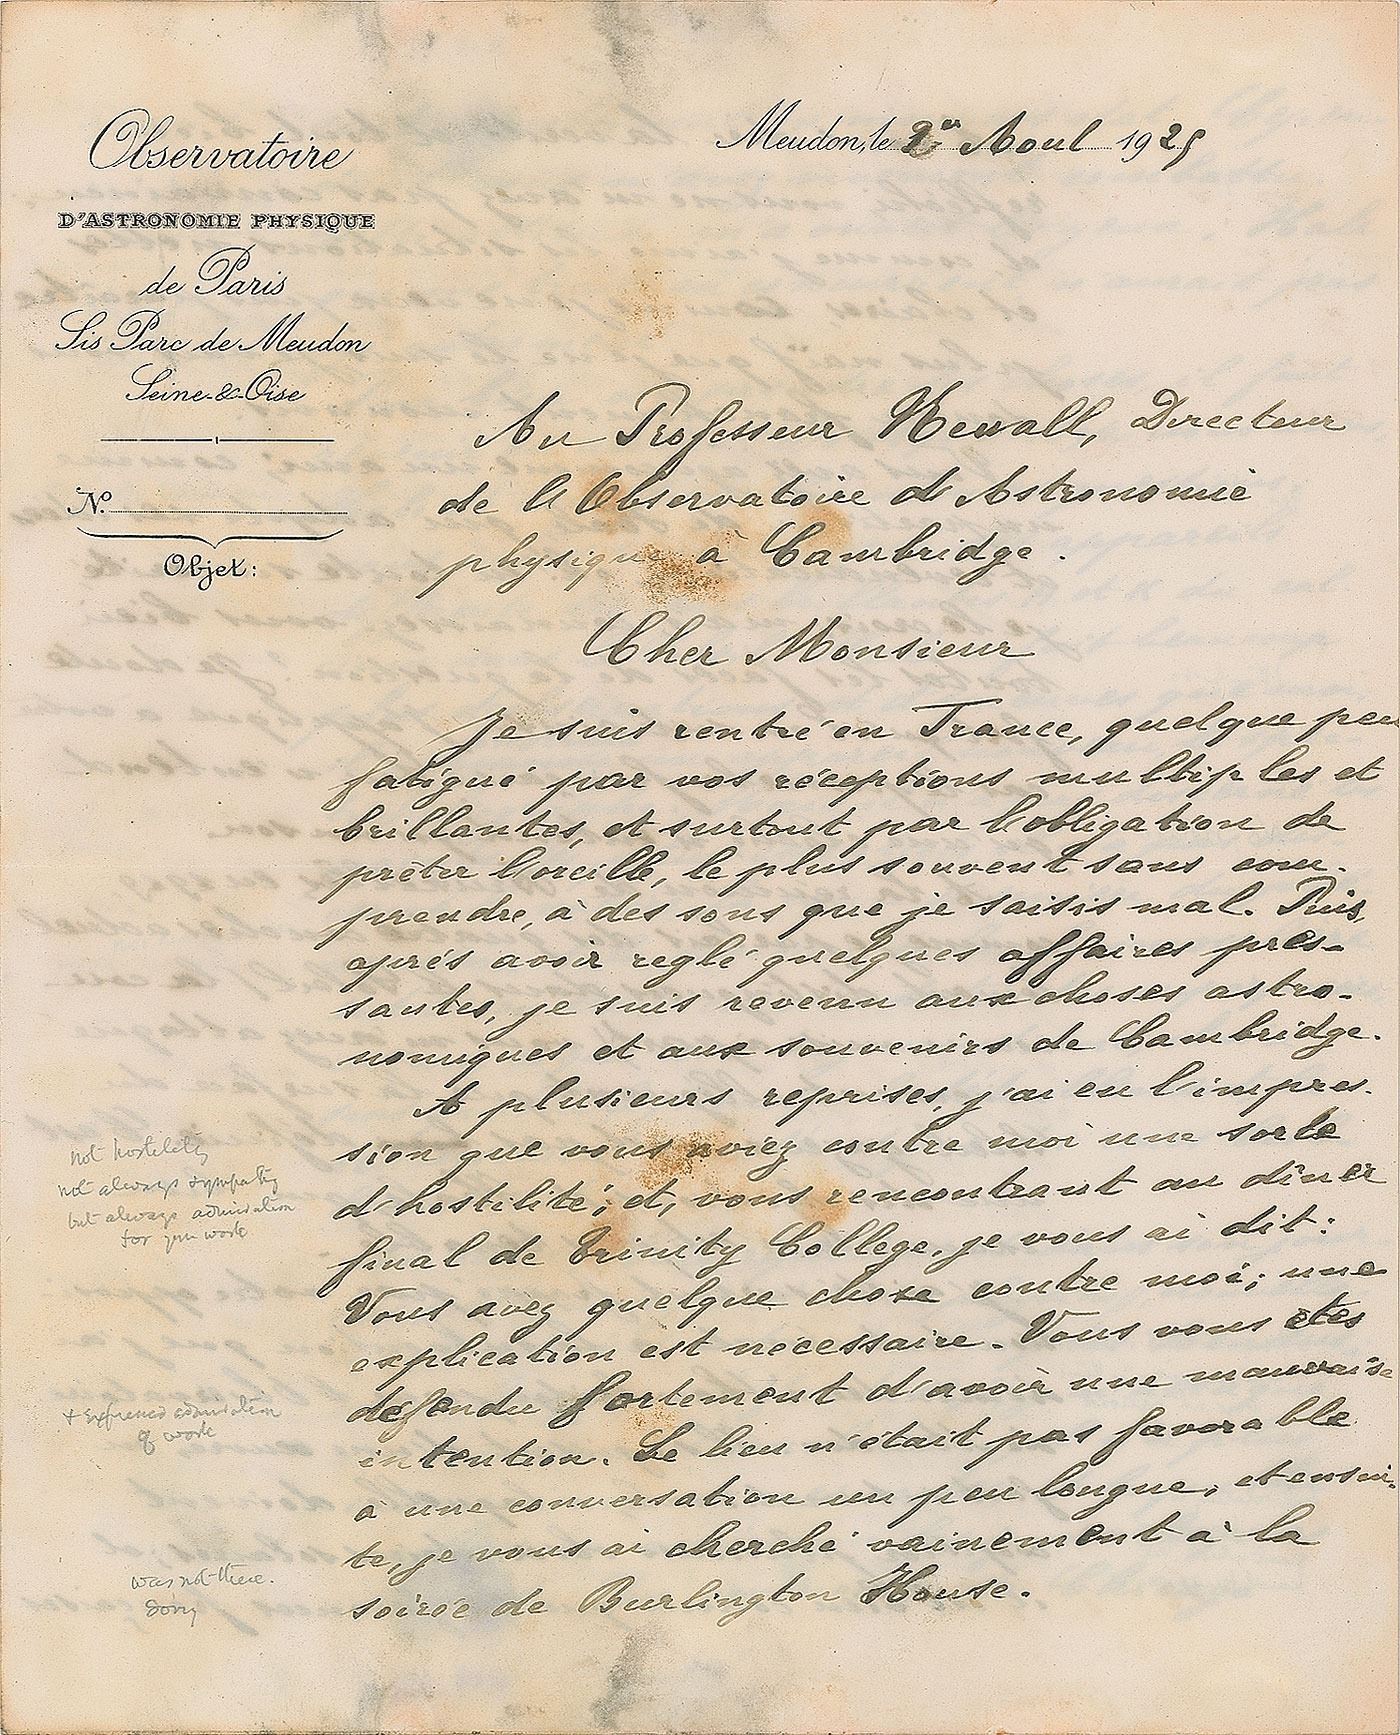 Observatoire
D'ASTRONOMIE PHYSIQUE
de Paris
Sis Parc de Meudon
Seine-&-Oise
N°
Objet:
Meudon, le 1er Aout 1925
Au Professeur Newall, Directeur
de l'Observatoire d'Astronomie
physique à Cambridge.
Cher Monsieur
Je suis rentré en France, quelque peu
fatigué par vos réceptions multiples et
brillantes, et surtout par l'obligation de
prêter l'oreille, le plus souvent sans com-
prendre, à des sons que je saisis mal. Puis,
après avoir reglé quelques affaires pres-
santes, je suis revenu aux choses astro-
nomiques et aux souvenirs de Cambridge.
A plusieurs reprises, j'ai eu l'impres-
sion que vous aviez contre moi une sorte
d'hostilité; et, vous rencontrant au dîner
final de Trinity College, je vous ai dit:
Vous avez quelque chose contre moi; une
explication est nécessaire. Vous vous êtes
défendu fortement d'avoir une mauvaise
intention. Le lieu n'était pas favorable
à une conversation un peu longue, et ensui-
te, je vous ai cherché vainement à la
soirée de Burlington House.
not hostility
not always sympathy
but always admiration
for your work
+ expressed admiration
of work
was not there.
Sorry